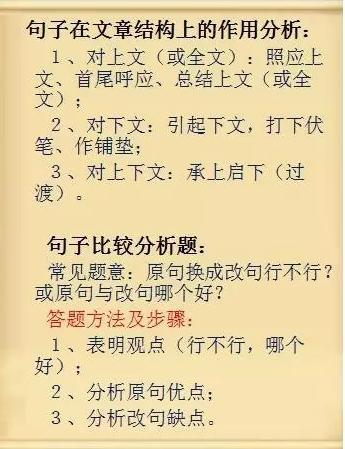 句子在文章结构上的作用分析：
1、对上文（或全文）：照应上
文、首尾呼应、总结上文（或全
文）；
2、对下文：引起下文，打下伏
笔、作铺垫；
3、对上下文：承上启下（过
渡）。
句子比较分析题：
常见题意：原句换成改句行不行？
或原句与改句哪个好？
答题方法及步骤：
1、表明观点（行不行，哪个
好）；
2、分析原句优点；
3、分析改句缺点。